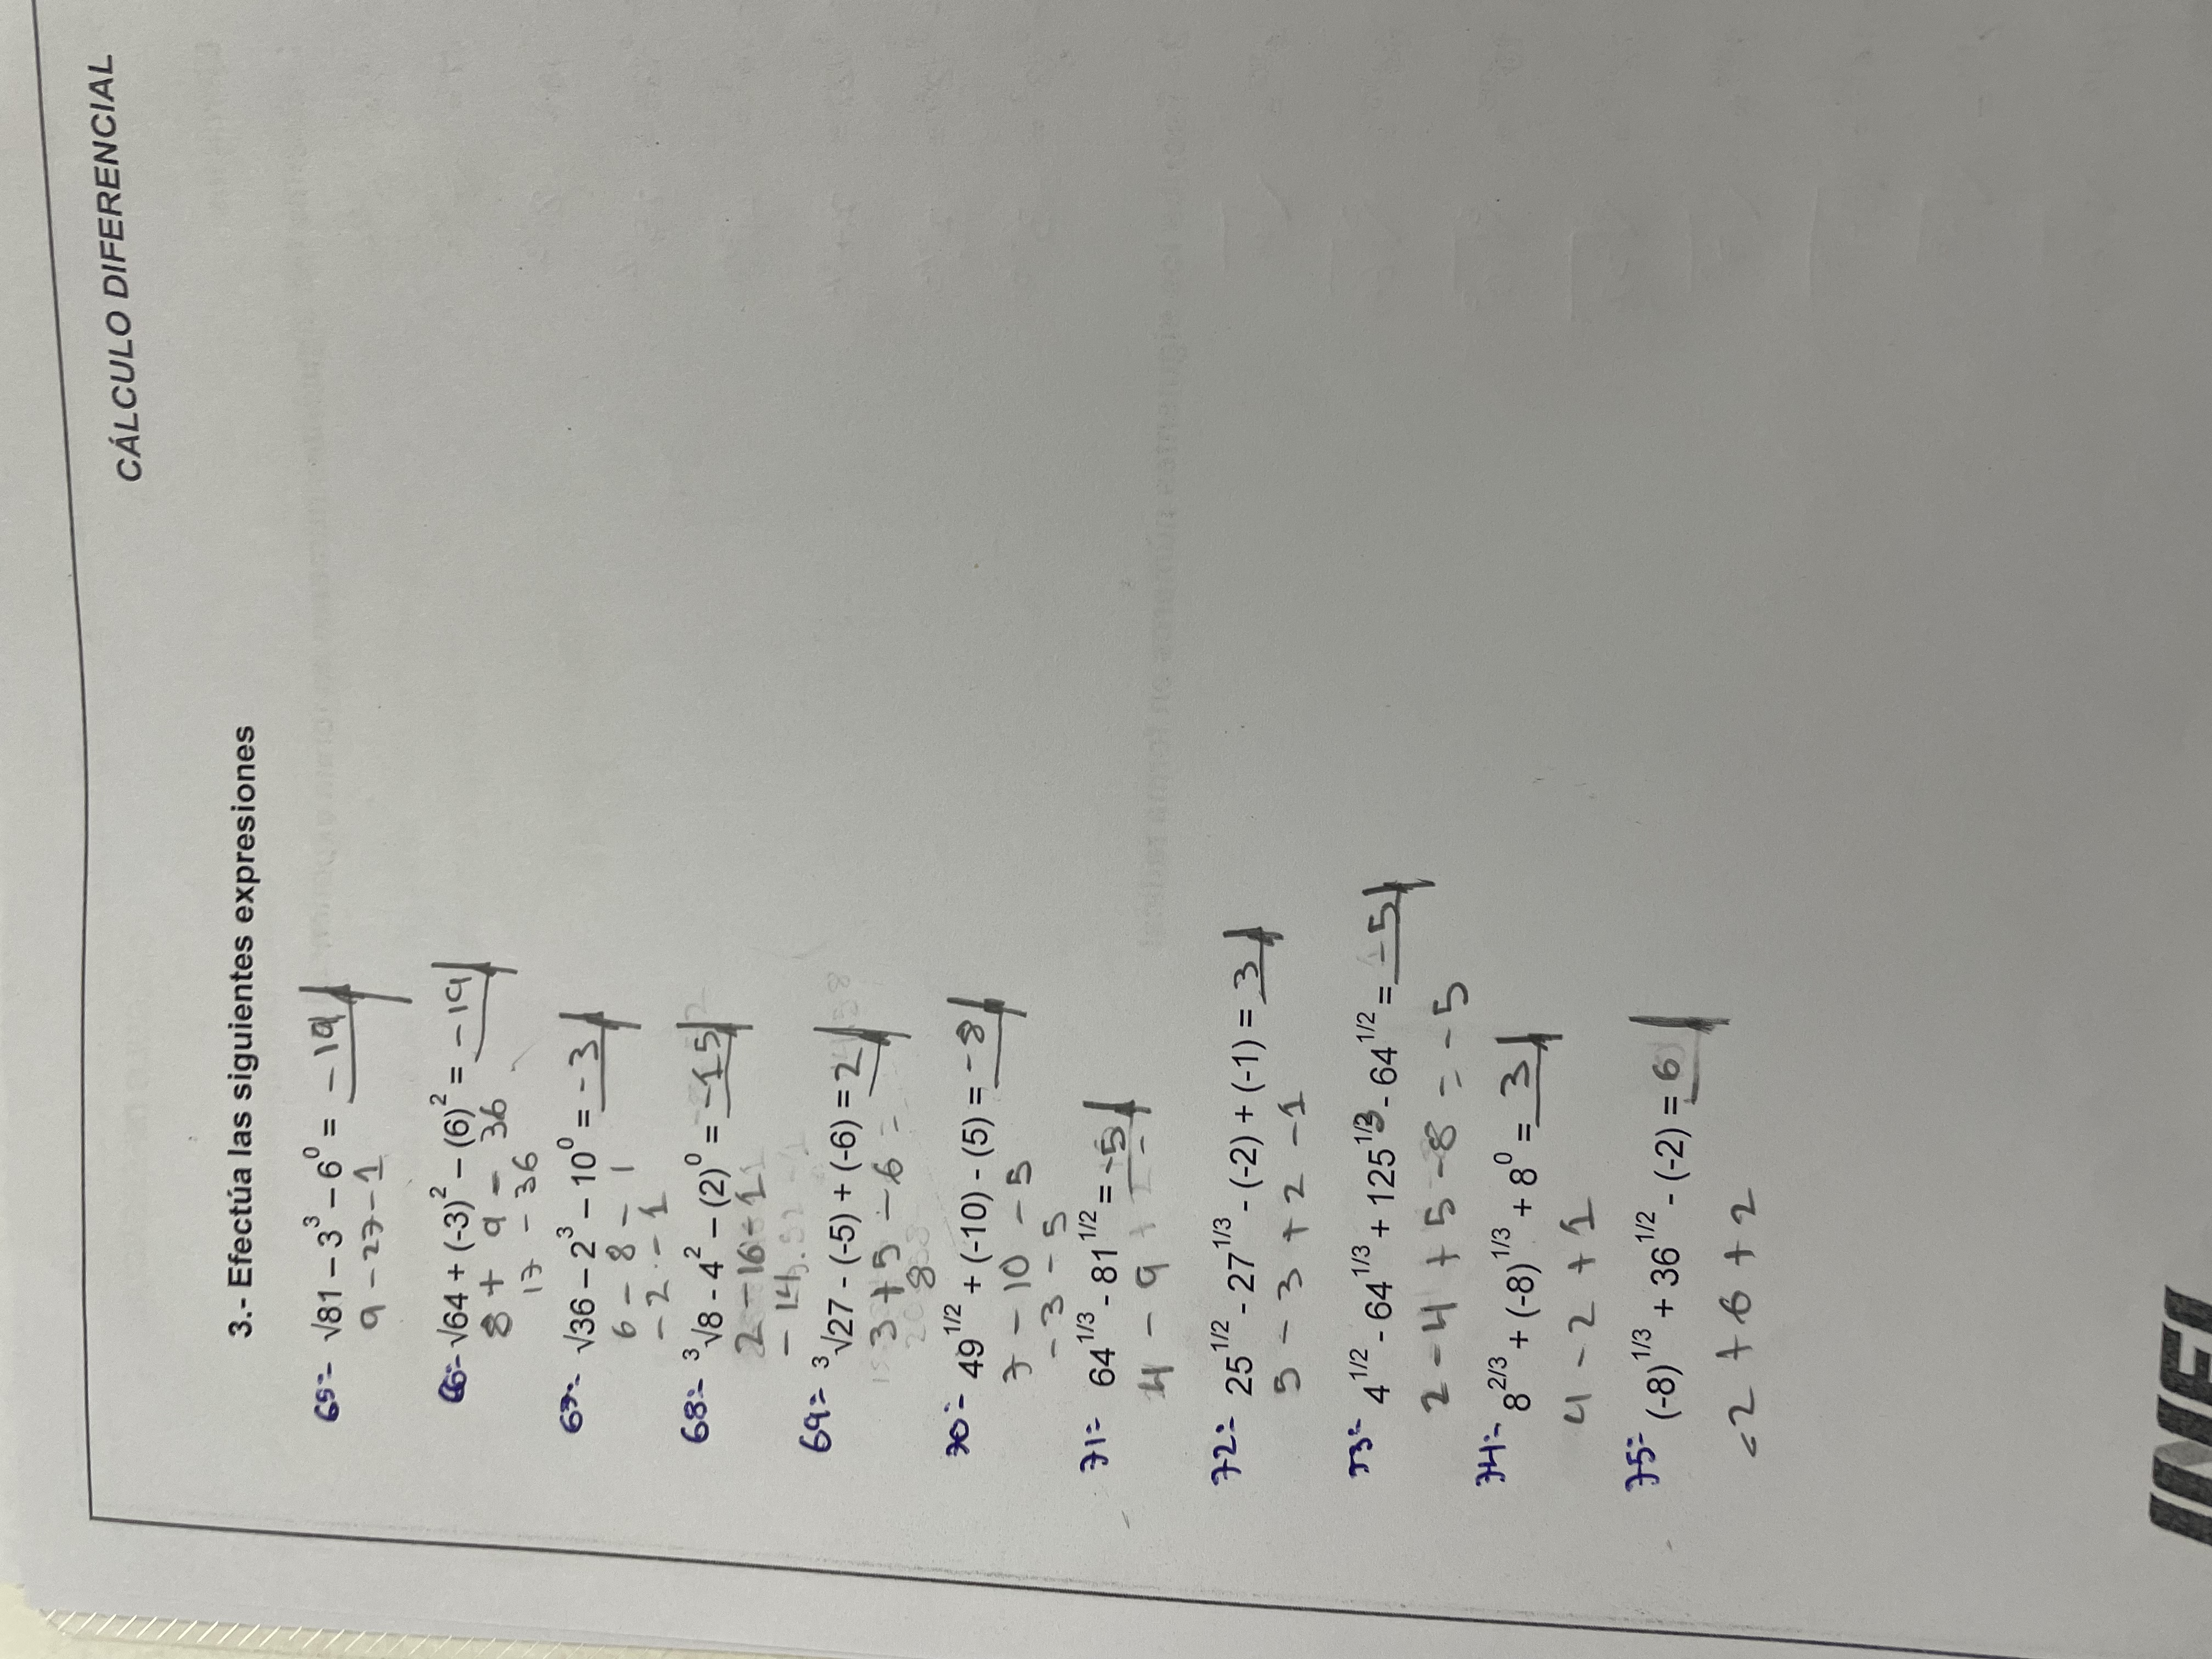 CÁLCULO DIFERENCIAL
3.- Efectúa las siguientes expresiones
65.- √81 – 3³ – 6⁰ = -19
9 - 27 - 1
66.- √64 + (-3)² – (6)² = -19
8 + 9 - 36
17 - 36
67.- √36 – 2³ – 10⁰ = -3
6 - 8 - 1
-2 - 1
68.- ³√8 - 4² – (2)⁰ = -15
2 - 16 - 1
- 14
69.- ³√27 - (-5) + (-6) = 2
3 + 5 - 6 =
8
70.- 49^1/2 + (-10) - (5) = -8
7 - 10 - 5
-3 - 5
71.- 64^1/3 - 81^1/2 = -5
4 - 9
72.- 25^1/2 - 27^1/3 - (-2) + (-1) = 3
5 - 3 + 2 - 1
73.- 4^1/2 - 64^1/3 + 125^1/3 - 64^1/2 = -5
2 - 4 + 5 - 8 = -5
74.- 8^2/3 + (-8)^1/3 + 8⁰ = 3
4 - 2 + 1
75.- (-8)^1/3 + 36^1/2 - (-2) = 6
-2 + 6 + 2